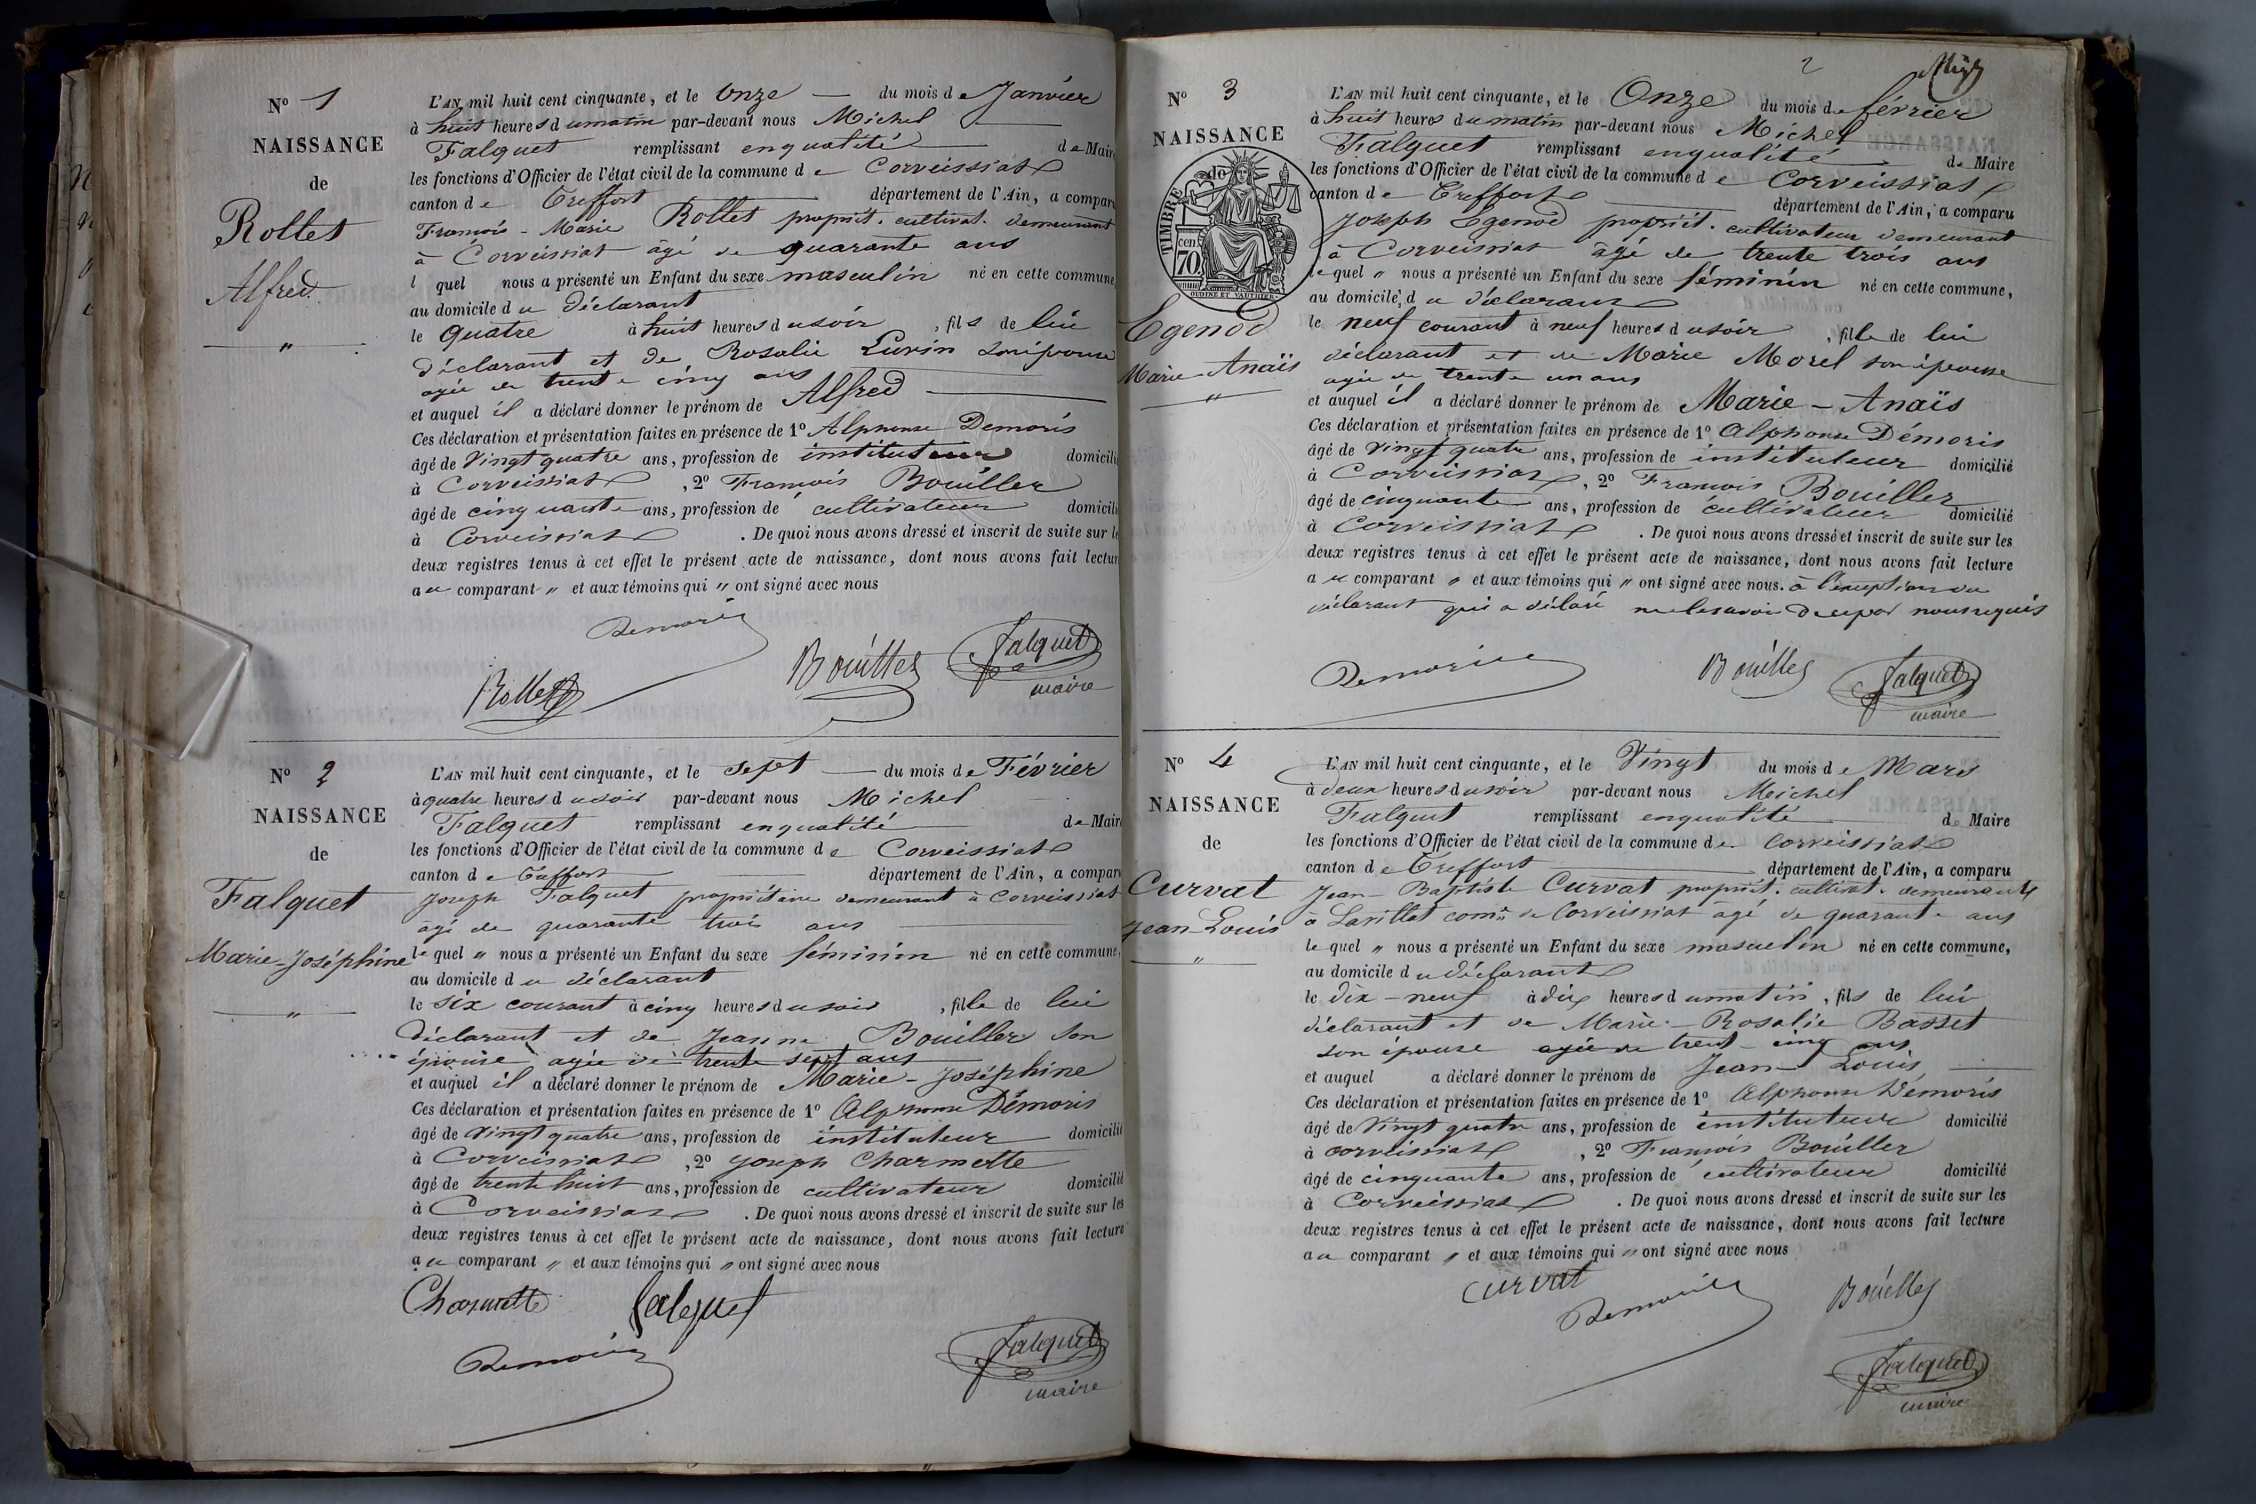 N° 1
NAISSANCE
de
Rollet
Alfred
L'AN mil huit cent cinquante, et le onze du mois de Janvier
à huit heures du matin par-devant nous Michel
Falquet remplissant en qualité de Maire
les fonctions d'Officier de l'état civil de la commune de Corveissiat
canton de Treffort département de l'Ain, a comparu
François-Marie Rollet propriét. cultivat. demeurant
à Corveissiat âgé de quarante ans
l quel nous a présenté un Enfant du sexe masculin né en cette commune,
au domicile du Déclarant
le quatre à huit heures du soir, fils de lui
déclarant et de Rosalie son épouse
agée de trente cinq ans
et auquel il a déclaré donner le prénom de Alfred
Ces déclaration et présentation faites en présence de 1° Alphonse Demoris
âgé de vingt quatre ans, profession de instituteur domicilié
à Corveissiat, 2° François Bouiller
âgé de cinquante ans, profession de cultivateur domicilié
à Corveissiat. De quoi nous avons dressé et inscrit de suite sur les
deux registres tenus à cet effet le présent acte de naissance, dont nous avons fait lecture
au comparant " et aux témoins qui " ont signé avec nous
Demoris
Rollet Bouiller Falquet
maire
N° 2
NAISSANCE
de
Falquet
Marie-Joséphine
L'AN mil huit cent cinquante, et le sept du mois de Février
à quatre heures du soir par-devant nous Michel
Falquet remplissant en qualité de Maire
les fonctions d'Officier de l'état civil de la commune de Corveissiat
canton de Treffort département de l'Ain, a comparu
Joseph Falquet propriétaire demeurant à Corveissiat
âgé de quarante trois ans
le quel " nous a présenté un Enfant du sexe féminin né en cette commune,
au domicile du déclarant
le six courant à cinq heures du soir, fille de lui
Déclarant et de Jeanne Bouiller son
épouse agée de trente sept ans
et auquel il a déclaré donner le prénom de Marie-Joséphine
Ces déclaration et présentation faites en présence de 1° Alphonse Démoris
âgé de vingt quatre ans, profession de instituteur domicilié
à Corveissiat, 2° Joseph Charmette
âgé de trente huit ans, profession de cultivateur domicilié
à Corveissiat. De quoi nous avons dressé et inscrit de suite sur les
deux registres tenus à cet effet le présent acte de naissance, dont nous avons fait lecture
au comparant " et aux témoins qui " ont signé avec nous
Charmette Falquet
Demoris Falquet
maire
2
N° 3
NAISSANCE
de
TIMBRE
70 cen.
OUDINÉ ET VAUTHIER
Egenod
Marie-Anaïs
L'AN mil huit cent cinquante, et le Onze du mois de février
à huit heures du matin par-devant nous Michel
Falquet remplissant en qualité de Maire
les fonctions d'Officier de l'état civil de la commune de Corveissiat
canton de Treffort département de l'Ain, a comparu
Joseph Egenod propriét. cultivateur demeurant
à Corveissiat âgé de trente trois ans
le quel " nous a présenté un Enfant du sexe féminin né en cette commune,
au domicile du déclarant
le neuf courant à neuf heures du soir, fille de lui
déclarant et de Marie Morel son épouse
agée de trente un ans
et auquel il a déclaré donner le prénom de Marie-Anaïs
Ces déclaration et présentation faites en présence de 1° Alphonse Démoris
âgé de vingt quatre ans, profession de instituteur domicilié
à Corveissiat, 2° François Bouiller
âgé de cinquante ans, profession de cultivateur domicilié
à Corveissiat. De quoi nous avons dressé et inscrit de suite sur les
deux registres tenus à cet effet le présent acte de naissance, dont nous avons fait lecture
au comparant " et aux témoins qui " ont signé avec nous. à l'exception du
déclarant qui a déclaré ne le savoir de ce par nous requis
Demoris Bouiller Falquet
maire
N° 4
NAISSANCE
de
Curvat
Jean-Louis
L'AN mil huit cent cinquante, et le Vingt du mois de Mars
à deux heures du soir par-devant nous Michel
Falquet remplissant en qualité de Maire
les fonctions d'Officier de l'état civil de la commune de Corveissiat
canton de Treffort département de l'Ain, a comparu
Jean-Baptiste Curvat propriét. cultivat. demeurant
à comne de Corveissiat âgé de quarante ans
le quel " nous a présenté un Enfant du sexe masculin né en cette commune,
au domicile du déclarant
le dix-neuf à dix heures du matin, fils de lui
déclarant et de Marie-Rosalie Basset
son épouse agée de trente cinq ans
et auquel a déclaré donner le prénom de Jean-Louis
Ces déclaration et présentation faites en présence de 1° Alphonse Démoris
âgé de vingt quatre ans, profession de instituteur domicilié
à corveissiat, 2° François Bouiller
âgé de cinquante ans, profession de cultivateur domicilié
à Corveissiat. De quoi nous avons dressé et inscrit de suite sur les
deux registres tenus à cet effet le présent acte de naissance, dont nous avons fait lecture
au comparant " et aux témoins qui " ont signé avec nous
Curvat
Demoris Bouiller
Falquet
maire